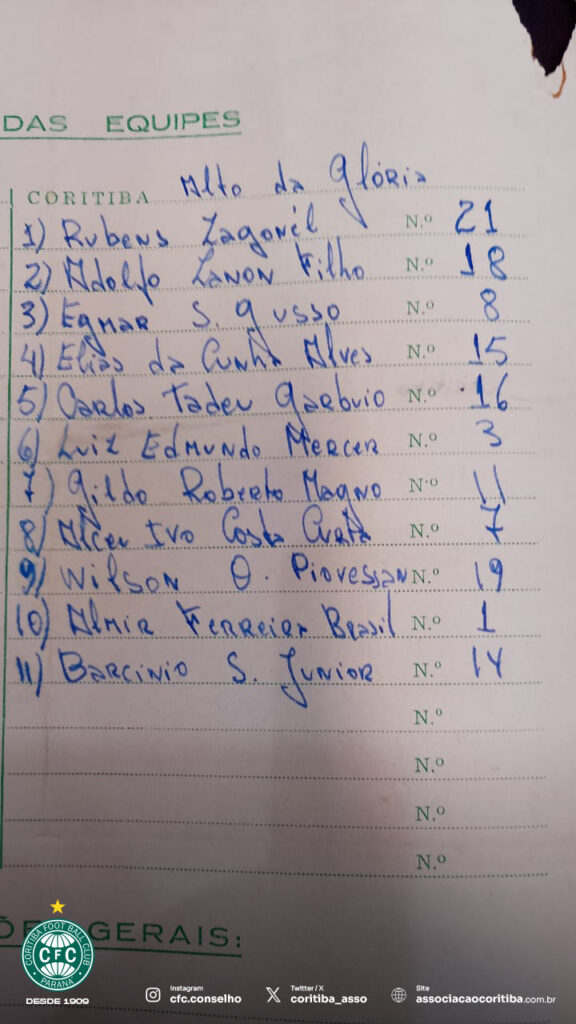 DAS EQUIPES
CORITIBA Alto da Glória
1) Rubens Zagonél N.º 21
2) Adolfo Zanon Filho N.º 18
3) Egmar S. Gusso N.º 8
4) Elias da Cunha Alves N.º 15
5) Carlos Tadeu Garbuio N.º 16
6) Luiz Edmundo Mercer N.º 3
7) Gildo Roberto Magno N.º 11
8) Alceu Ivo Costa N.º 7
9) Wilson O. Piovessan N.º 19
10) Almir Ferreira Brasil N.º 1
11) Barcinio S. Junior N.º 14
N.º
N.º
N.º
N.º
GERAIS:
CORITIBA FOOT BALL CLUB
CFC
PARANÁ
DESDE 1909
Instagram
cfc.conselho
Twitter/X
coritiba_asso
Site
associacaocoritiba.com.br